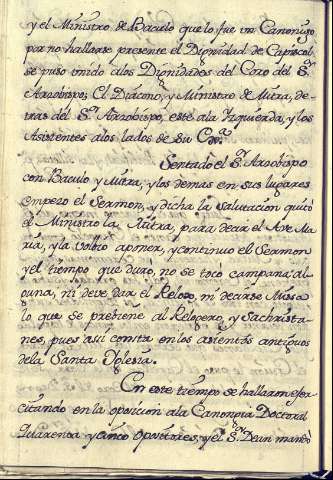 y el Ministro de Baculo que lo fue un Canonigo
por no hallarse presente el Dignidad de Capiscol
se puso unido a los Dignidades del Coro del Sr.
Arzobispo; El Diacono, y Ministro de Mitra, de-
tras del Sr. Arzobispo, este a la Izquierda, y los
Asistentes a los lados de Su Exa.
Sentado el Sr. Arzobispo
con Baculo y Mitra, y los demas en sus lugares
empezo el Sermon, y dicha la Salutacion quitó
el Ministro la Mitra, para decir el Ave Ma
ria, y la volvio a poner, y continuo el Sermon
y el tiempo que duró, no se toco campana al-
guna, ni deve dar el Relox, ni decirse Missa
lo que se previene al Relogero, y Sachrista-
nes, pues asi consta en los asientos antiguos
de la Santa Yglesia.
En este tiempo se hallaron exer
citando en la oposicion a la Canongia Doctoral
Quarenta y cinco Opositores, y el Sr. Dean mandó